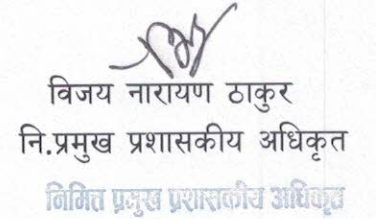 विजय नारायण ठाकुर
नि.प्रमुख प्रशासकीय अधिकृत
निमित्त प्रमुख प्रशासकीय अधिकृत